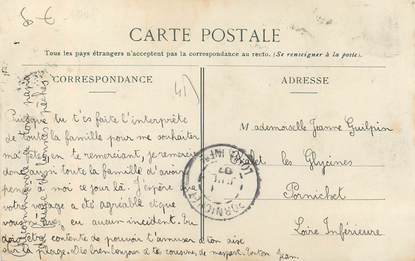 6 €
CARTE POSTALE
Tous les pays étrangers n'acceptent pas la correspondance au recto. (Se renseigner à la poste).
CORRESPONDANCE
ADRESSE
41)
Puisque tu t'es faite l'interprète
de toute la famille pour me souhaiter
ma fête, en te remerciant, je remercie
toute la famille d'avoir
pensé à moi ce jour là. J'espère que
votre voyage a été agréable et que
vous eu aucun incident. Tu
dois être contente de pouvoir t'amuser à ton aise
sur la plage. te couvrir de
Mademoiselle Jeanne Guilpin
les Glycines
Pornichet
Loire Inférieure
PORNICHET
LOIRE INFRE